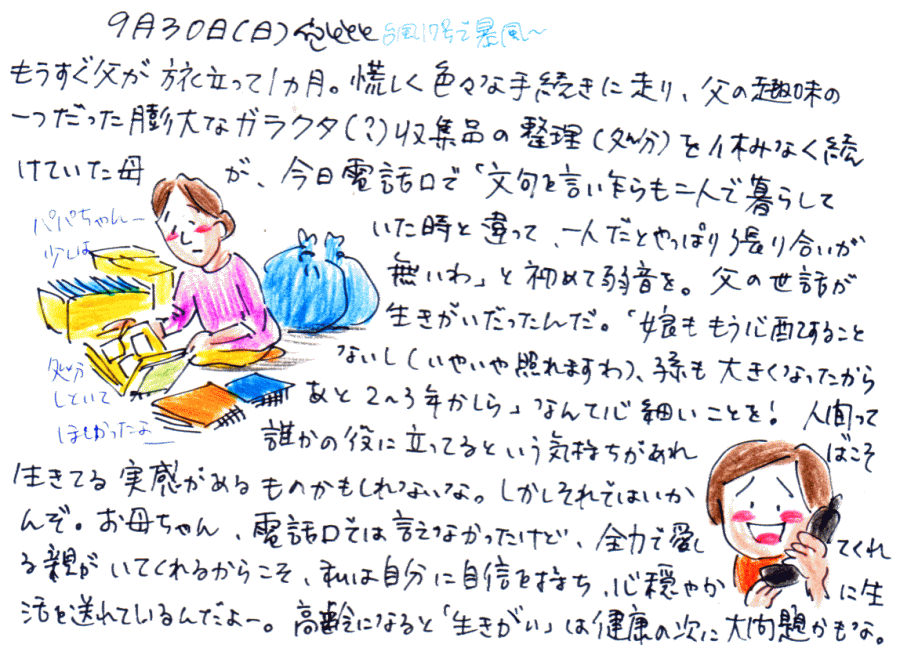 9月30日(日) 台風17号で暴風〜
もうすぐ父が旅立って1カ月。慌しく色々な手続きに走り、父の趣味の
一つだった膨大なガラクタ(?)収集品の整理(処分)を休みなく続
けていた母が、今日電話口で「文句を言い乍らも二人で暮らして
いた時と違って、一人だとやっぱり張り合いが
無いわ」と初めて弱音を。父の世話が
生きがいだったんだ。「娘ももう心配すること
ないし(いやいや照れますわ)、孫も大きくなったから
あと2〜3年かしら」なんて心細いことを! 人間って
誰かの役に立ってるという気持ちがあればこそ
生きてる実感があるものかもしれないな。しかしそれではいか
んぞ。お母ちゃん、電話口では言えなかったけど、全力で愛してくれ
る親がいてくれるからこそ、私は自分に自信を持ち、心穏やかに生
活を送れているんだよー。高齢になると「生きがい」は健康の次に大問題かもな。
パパちゃんー
少しは
処分
しといて
ほしかったよ